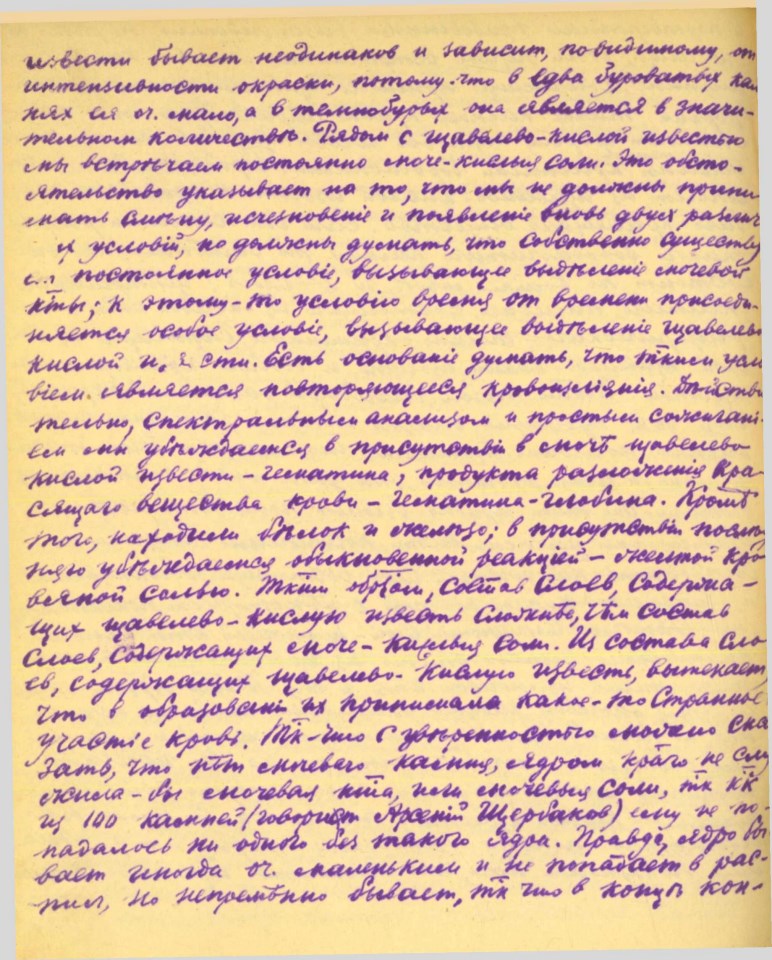 извести бываетъ неодинаков и зависит, по видимому, от
интенсивности окраски, потому-что в едва буроватых кам
нях ея оч. мало, а в темнобурых она является в значи-
тельном количествѣ. Рядом с щавелево-кислой известью
мы встрѣчаем постоянно моче-кислыя соли. Это обсто-
ятельство указывает на то, что мы не должны прини
мать смѣну, исчезновеніе и появленіе вновь двух различ
х условій, но должны думать, что собственно существу
постоянное условіе, вызывающее выдѣленіе мочевой
к̅ты; к этому-то условію время от времени присоеди-
няется особое условіе, вызывающее выдѣленіе щавелево
кислой и сти. Есть основаніе думать, что ткими усло
віем является повторяющееся кровоизліянія. Дѣйстви
тельно, спектральным анализом и простым сожигані-
ем мы убѣждаемся в присутствіи в мочѣ щавелево
кислой извести - гематина, продукта разложенія кра-
сящаго вещества крови - гематина-глобина. Кромѣ
того, находим бѣлок и желѣзо; в присутствіи послѣд
няго убѣждаемся обыкновенной реакціей - желтой кро
вяной солью. Тк̅им обр̅зом, сост̅ав слоев, содержа-
щих щавелево-кислую известь сложнѣе, чѣм состав
слоев, содержащих моче-кислыя соли. Из состава сло
ев, содержащих щавелево-кислую известь, вытекает,
что в образованіи их принимала какое-то странное
участіе кровь. Тк̅-что с увѣренностью можно ска
зать, что нѣт мочевого камня, ядром кр̅аго не слу
жила-бы мочевая к̅та, или мочевыя соли, тк̅ к̅к
из 100 камней (говорит Арсеній Щербаков) ему не по-
падалось ни одного без такого ядра. Правда, ядро бы
вает иногда оч. маленьким и не попадает в рас-
пил, но непремѣнно бывает, тк̅ что в концѣ кон-